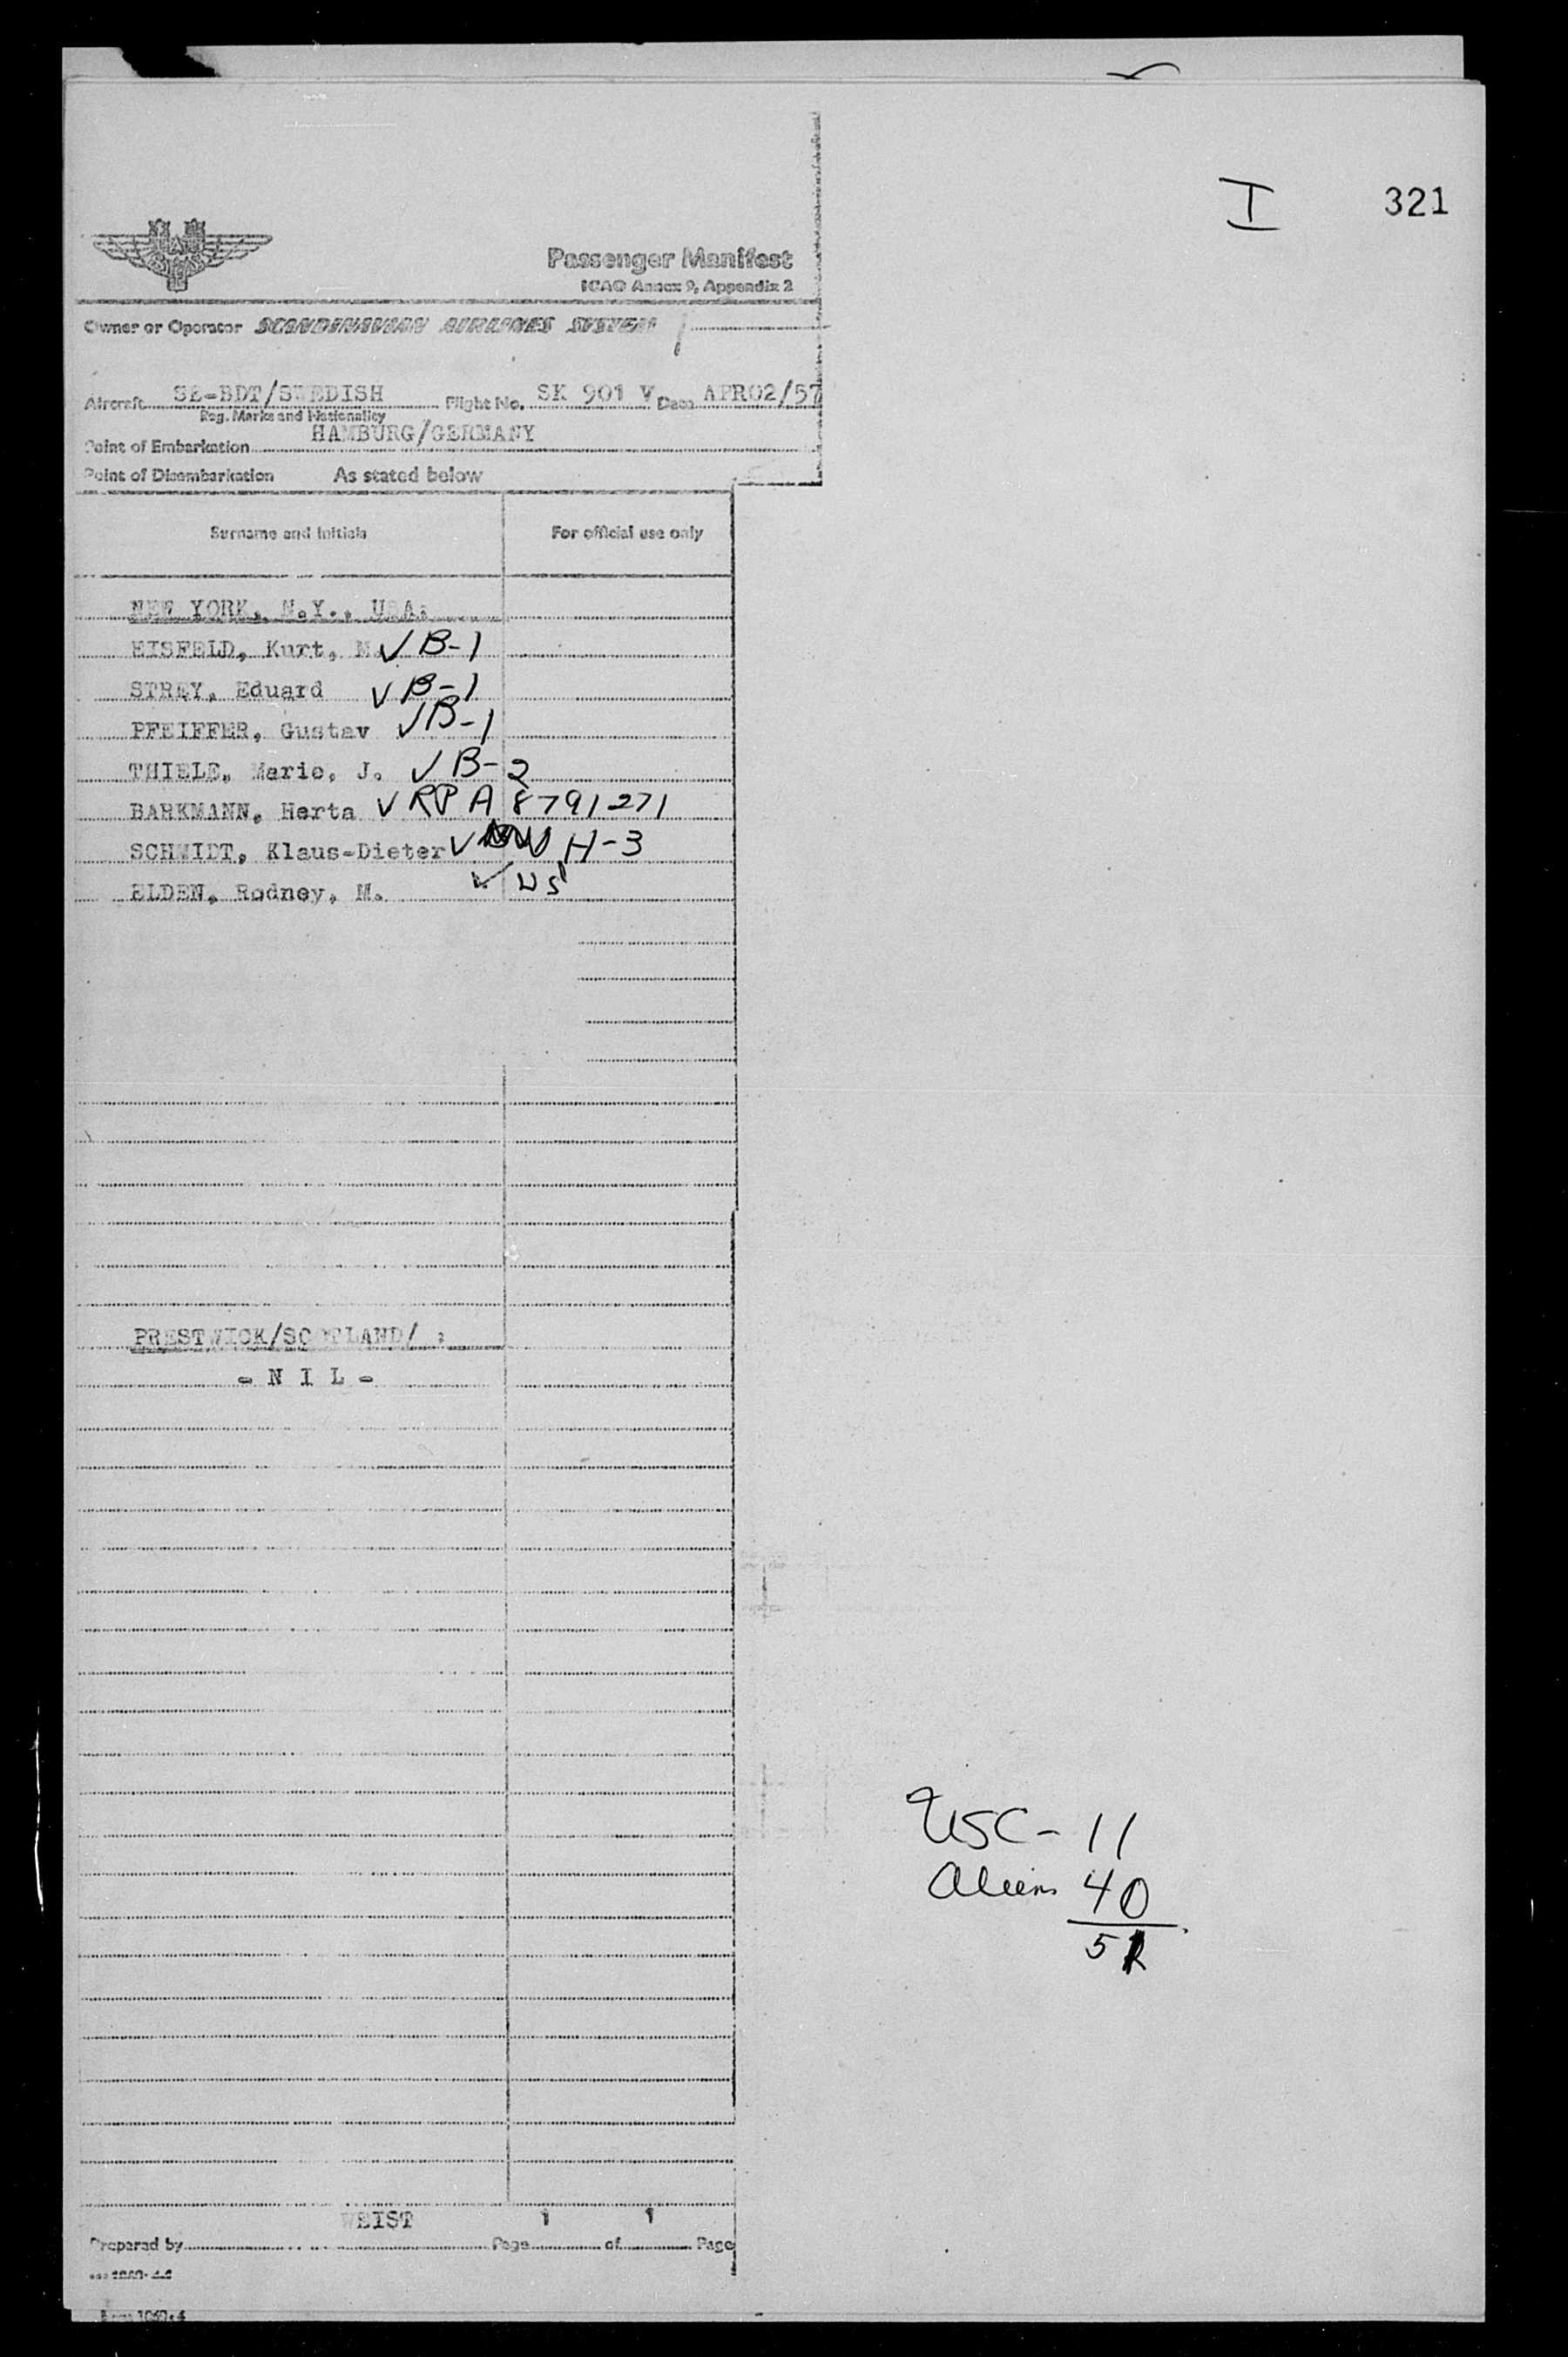 I 321
Passenger Manifest
ICAO Annex 9, Appendix 2
Owner or Operator SCANDINAVIAN AIRLINES SYSTEM
Aircraft SE-BDT/SWEDISH Flight No. SK 901 V Date APR02/57
Reg. Marks and Nationality
Point of Embarkation HAMBURG/GERMANY
Point of Disembarkation As stated below
Surname and Initials For official use only
NEW YORK, N.Y., USA:
EISFELD, Kurt, M. ✓ B-1
STREY, Eduard ✓ B-1
PFEIFFER, Gustav ✓ B-1
THIELE, Marie, J. ✓ B-2
BARKMANN, Herta ✓ RP A 8791271
SCHMIDT, Klaus-Dieter ✓ H-3
ELDEN, Rodney, M. ✓ US
PRESTWICK/SCOTLAND/ :
- N I L -
USC - 11
Aliens 40
51
WEIST 1 1
Prepared by Page of Page